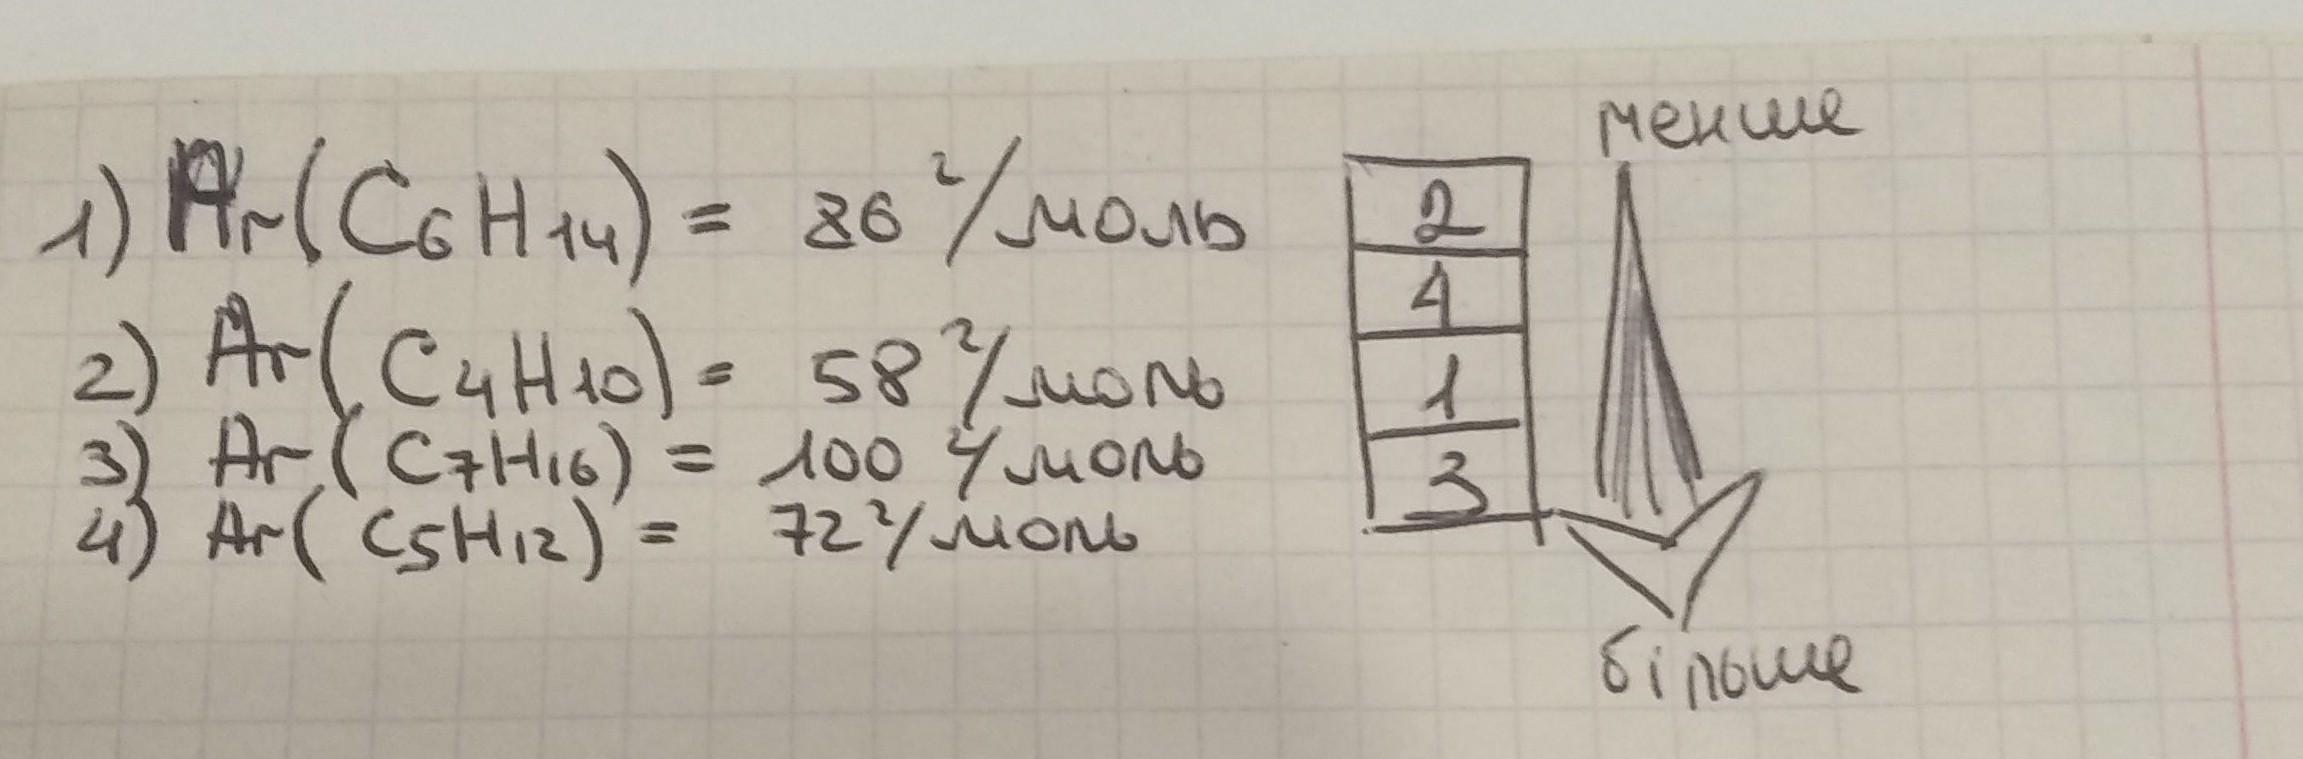 1) Ar(C₆H₁₄) = 86 г/моль
2) Ar(C₄H₁₀) = 58 г/моль
3) Ar(C₇H₁₆) = 100 г/моль
4) Ar(C₅H₁₂) = 72 г/моль
менше
2
4
1
3
більше